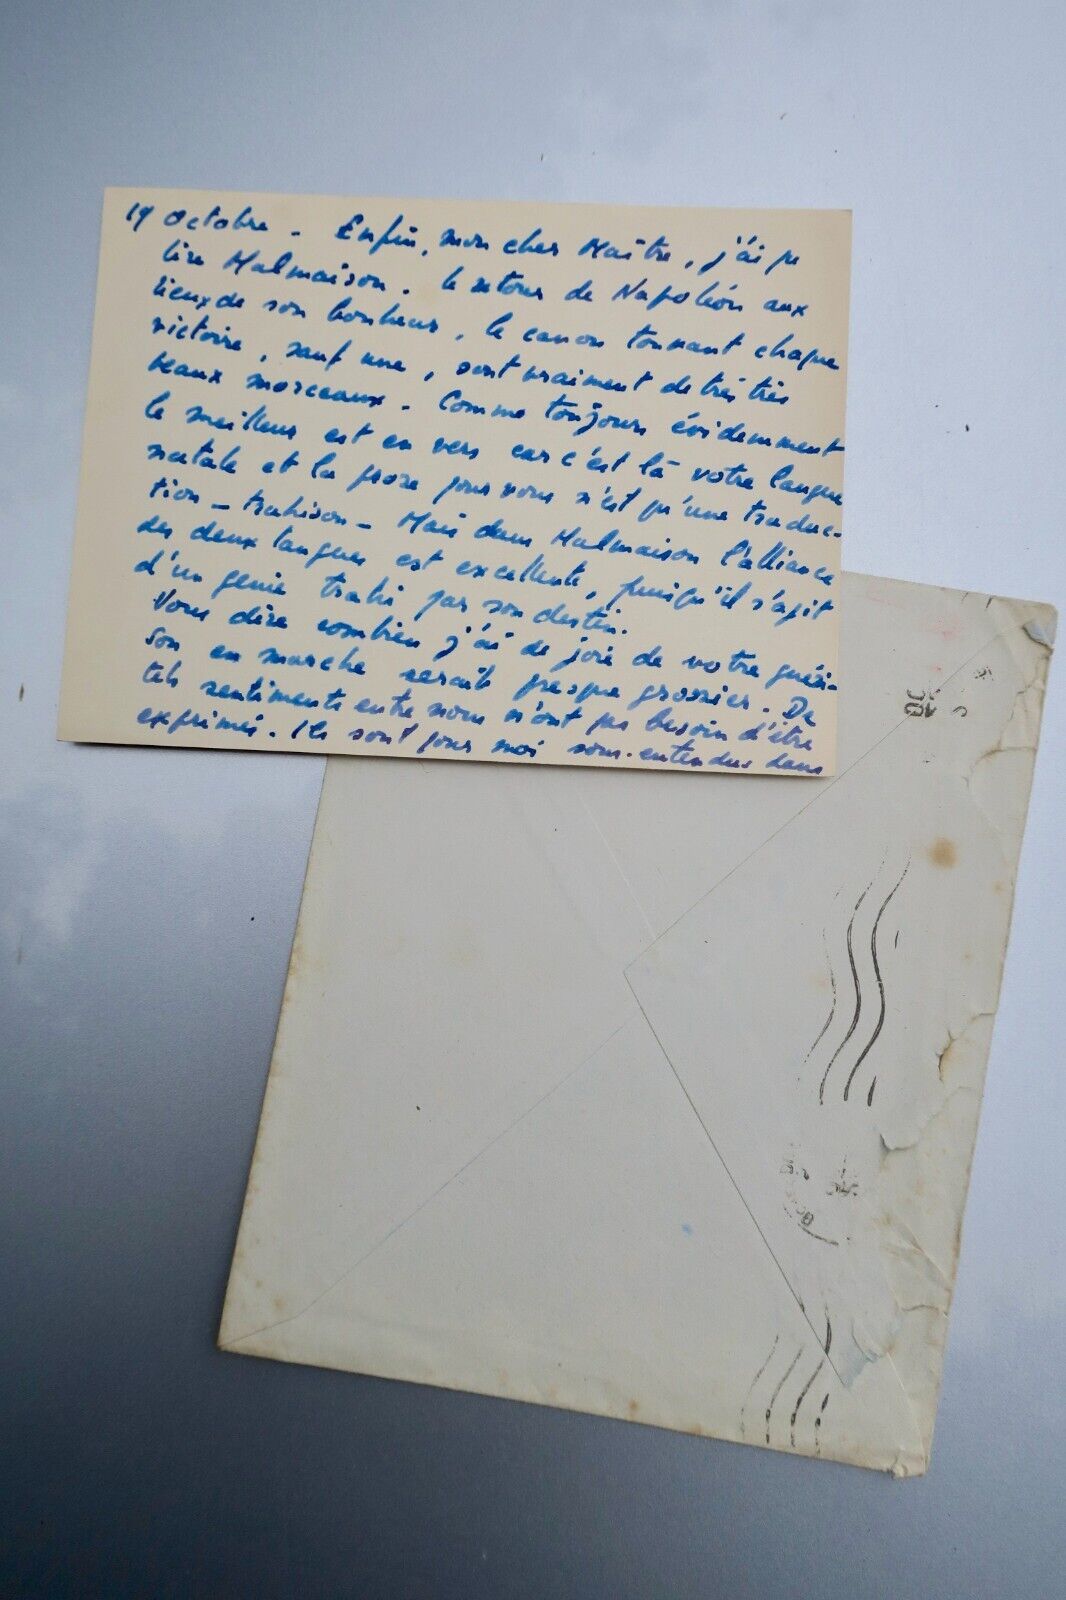 Octobre - Enfin, mon cher Maître, j'ai pu
lire Malmaison. le retour de Napoléon aux
lieux de son bonheur, le canon tonnant chaque
victoire, sauf une, sont vraiment de très très
beaux morceaux. Comme toujours évidemment
le meilleur est en vers car c'est là votre langue
natale et la prose pour vous n'est qu'une traduc-
tion - trahison - Mais dans Malmaison l'alliance
des deux langues est excellente, puisqu'il s'agit
d'un genie trahi par son destin.
Vous dire combien j'ai de joie de votre guéri-
son en marche serait presque grossier. De
tels sentiments entre nous n'ont pas besoin d'être
exprimés. Ils sont pour moi sous-entendus dans